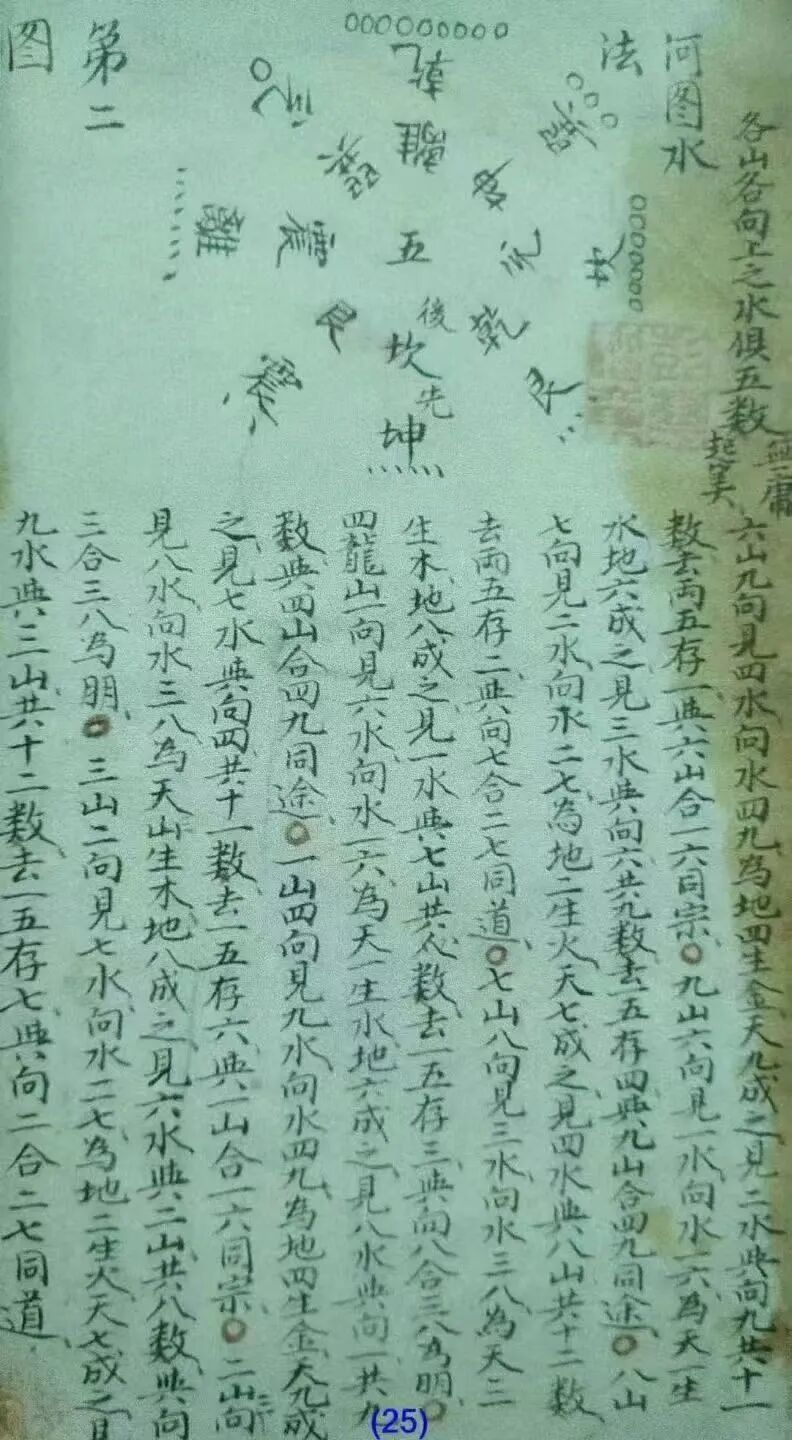 河图水
法
第二
图
各山各向上之水俱五数
無庸
起巽
乾
離
巽
兑
震
離
五
兑
坎
艮
後
坎
乾
先
震
坤
艮
六山九向見四水向水四九為地四生金天九成之見二水共向九共十一
数去両五存一共六山合一六同宗〇九山六向見一水向水一六為天一生
水地六成之見三水共向六共九数去一五存四共九山合四九同途〇八山
七向見二水向水二七為地二生火天七成之見四水共八山共十二数
去両五存二共向七合二七同道〇七山八向見三水向水三八為天三
生木地八成之見一水共七山共八数去一五存三共向八合三八為朋〇
四龍山一向見六水向水一六為天一生水地六成之見八水共向一共九
数共四山合四九同途〇一山四向見九水向水四九為地四生金天九成
之見七水共向四共十一数去一五存六共一山合一六同宗〇二山向三
見八水向水三八為天山生木地八成之見六水共二山共八数共向
三合三八為朋〇三山二向見七水向水二七為地二生火天七成之見
九水共三山共十二数去一五存七共向二合二七同道
(25)